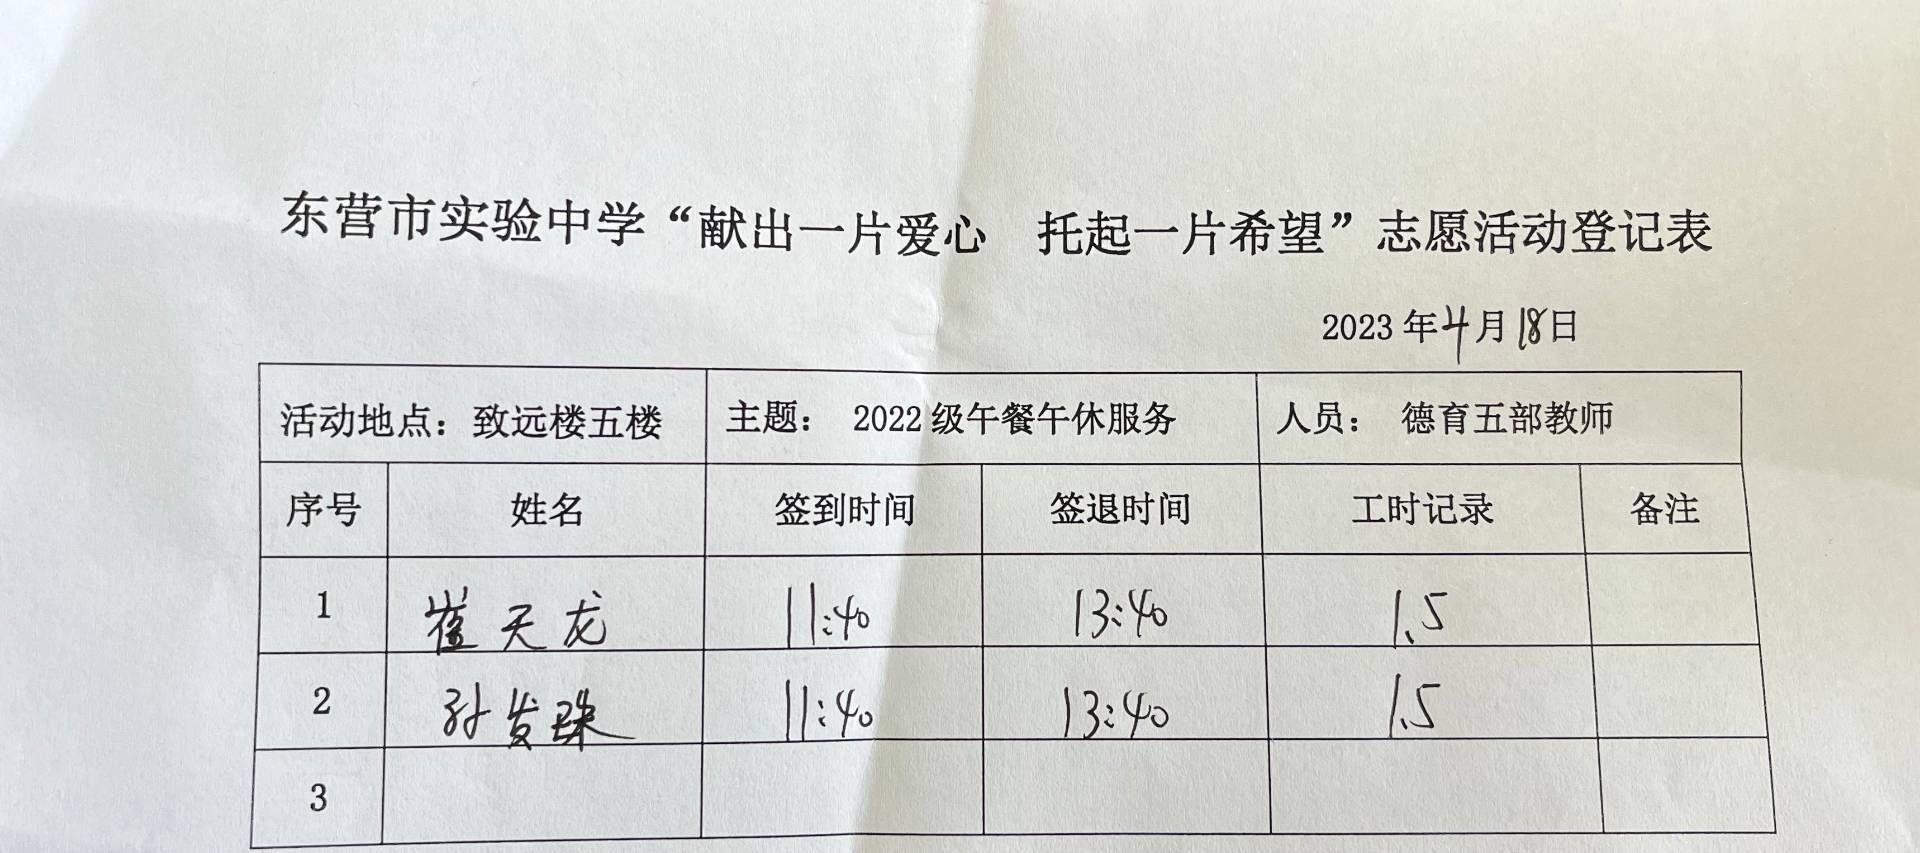 东营市实验中学“献出一片爱心 托起一片希望”志愿活动登记表
2023年4月18日
活动地点：致远楼五楼 主题： 2022级午餐午休服务 人员： 德育五部教师
序号 姓名 签到时间 签退时间 工时记录 备注
1 崔天龙 11:40 13:40 1.5
2 孙发珠 11:40 13:40 1.5
3